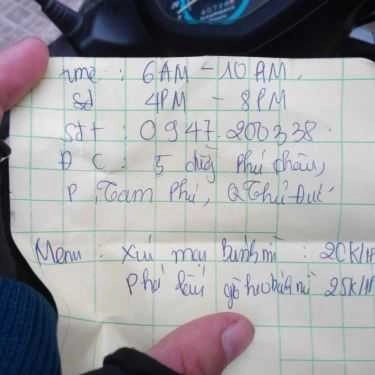 time : 6AM - 10AM.
4PM - 8PM
Sđt : 0947.200338.
Đ C : 5 đường Phú Châu,
P, Tam Phú, Q Thủ Đức
Menu : Xíu mại bánh mì : 20K/
Phá lấu bánh mì 25K/